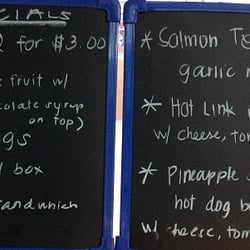 CIALS
2 for $3.00
fruit w/
colate syrup
on top)
gs
box
andwhich
* Salmon T
garlic
* Hot Link
w/ cheese, tom
* Pineapple
hot dog b
w/ cheese, tom